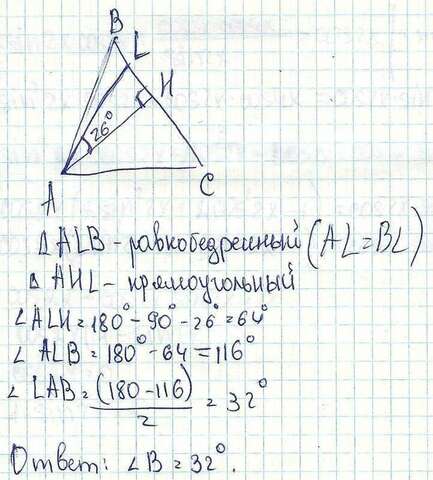 B
L
H
26°
A
C
△ALB - равнобедренный (AL=BL)
△AHL - прямоугольный
∠ALH = 180° - 90° - 26° = 64°
∠ALB = 180° - 64 = 116°
∠LAB = (180 - 116) / 2 = 32°
Ответ: ∠B = 32°.